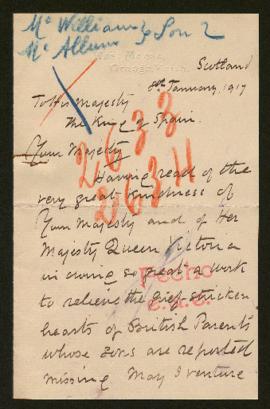 Mc Williams & Son 2
Mc Allum
Scotland
8th January 1917
To His Majesty
The King of Spain.
2633
2634
Your Majesty
Having read of the
very great kindness of
Your Majesty and of Her
Majesty Queen Victoria
in doing so great a work
to relieve the grief-stricken
Fecho
hearts of British Parents
whose sons are reported
missing May I venture